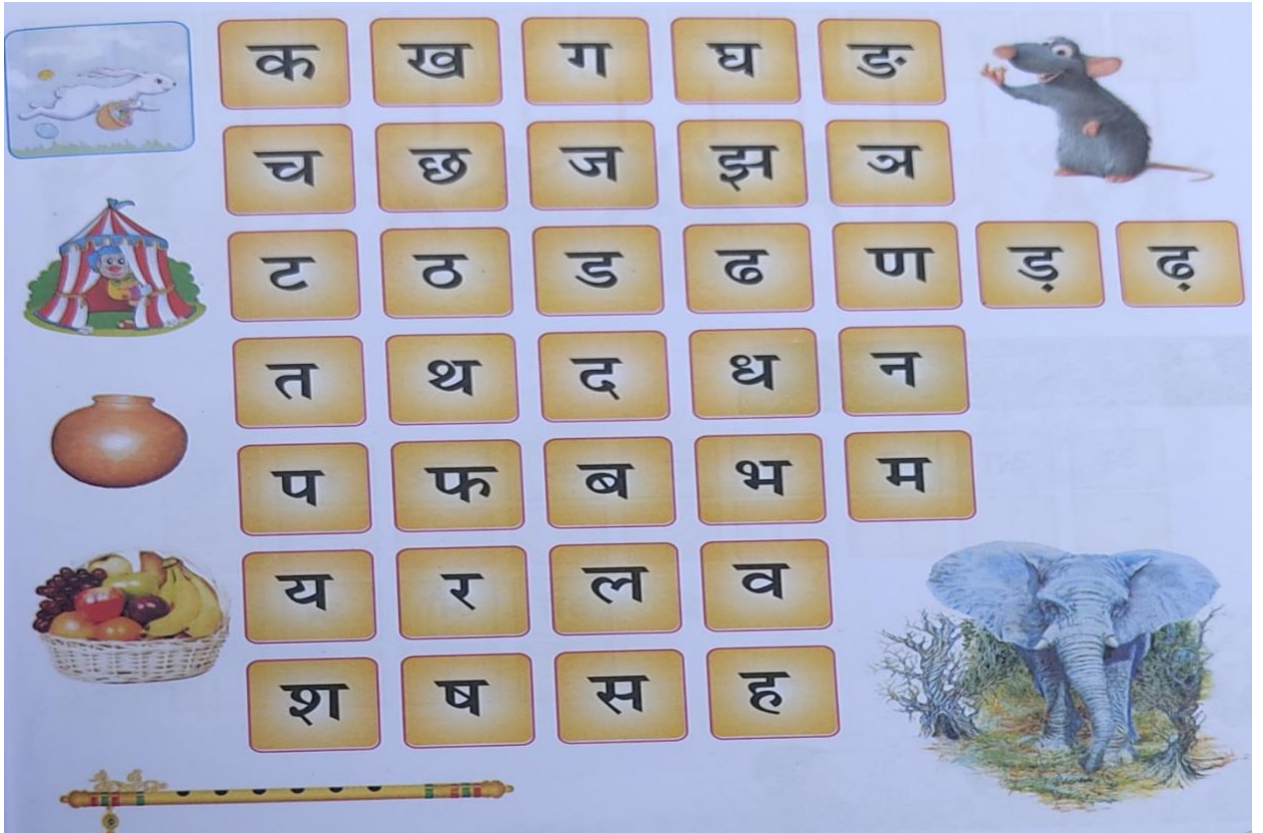 क ख ग घ ङ
च छ ज झ ञ
ट ठ ड ढ ण ड़ ढ़
त थ द ध न
प फ ब भ म
य र ल व
श ष स ह